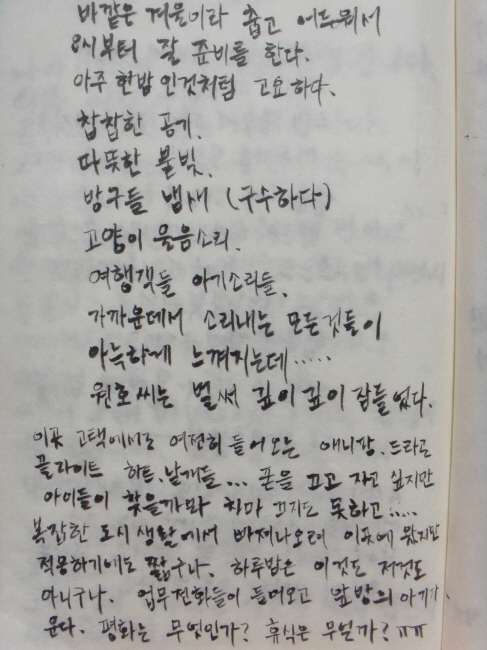 바깥은 겨울이라 춥고 어두워서
8시부터 잘 준비를 한다.
아주 한밤인것처럼 고요하다.
찹찹한 공기.
따뜻한 불빛.
방구들 냄새 (구수하다)
고양이 울음소리.
여행객들 아기소리들.
가까운데서 소리내는 모든것들이
아늑하게 느껴지는데.....
원호씨는 벌써 깊이깊이 잠들었다.
이곳 고택에서도 여전히 들어오는 애니팡. 드라곤
플라이트 하트, 날개들... 폰을 끄고 자고 싶지만
아이들이 찾을까봐 차마 끄지도 못하고.....
복잡한 도시 생활에서 빠져나오려 이곳에 왔지만
적응하기에도 짧구나. 하루밤은 이것도 저것도
아니구나. 업무전화들이 들어오고 앞방의 아기가
운다. 평화는 무엇인가? 휴식은 무얼까? ㅠㅠ